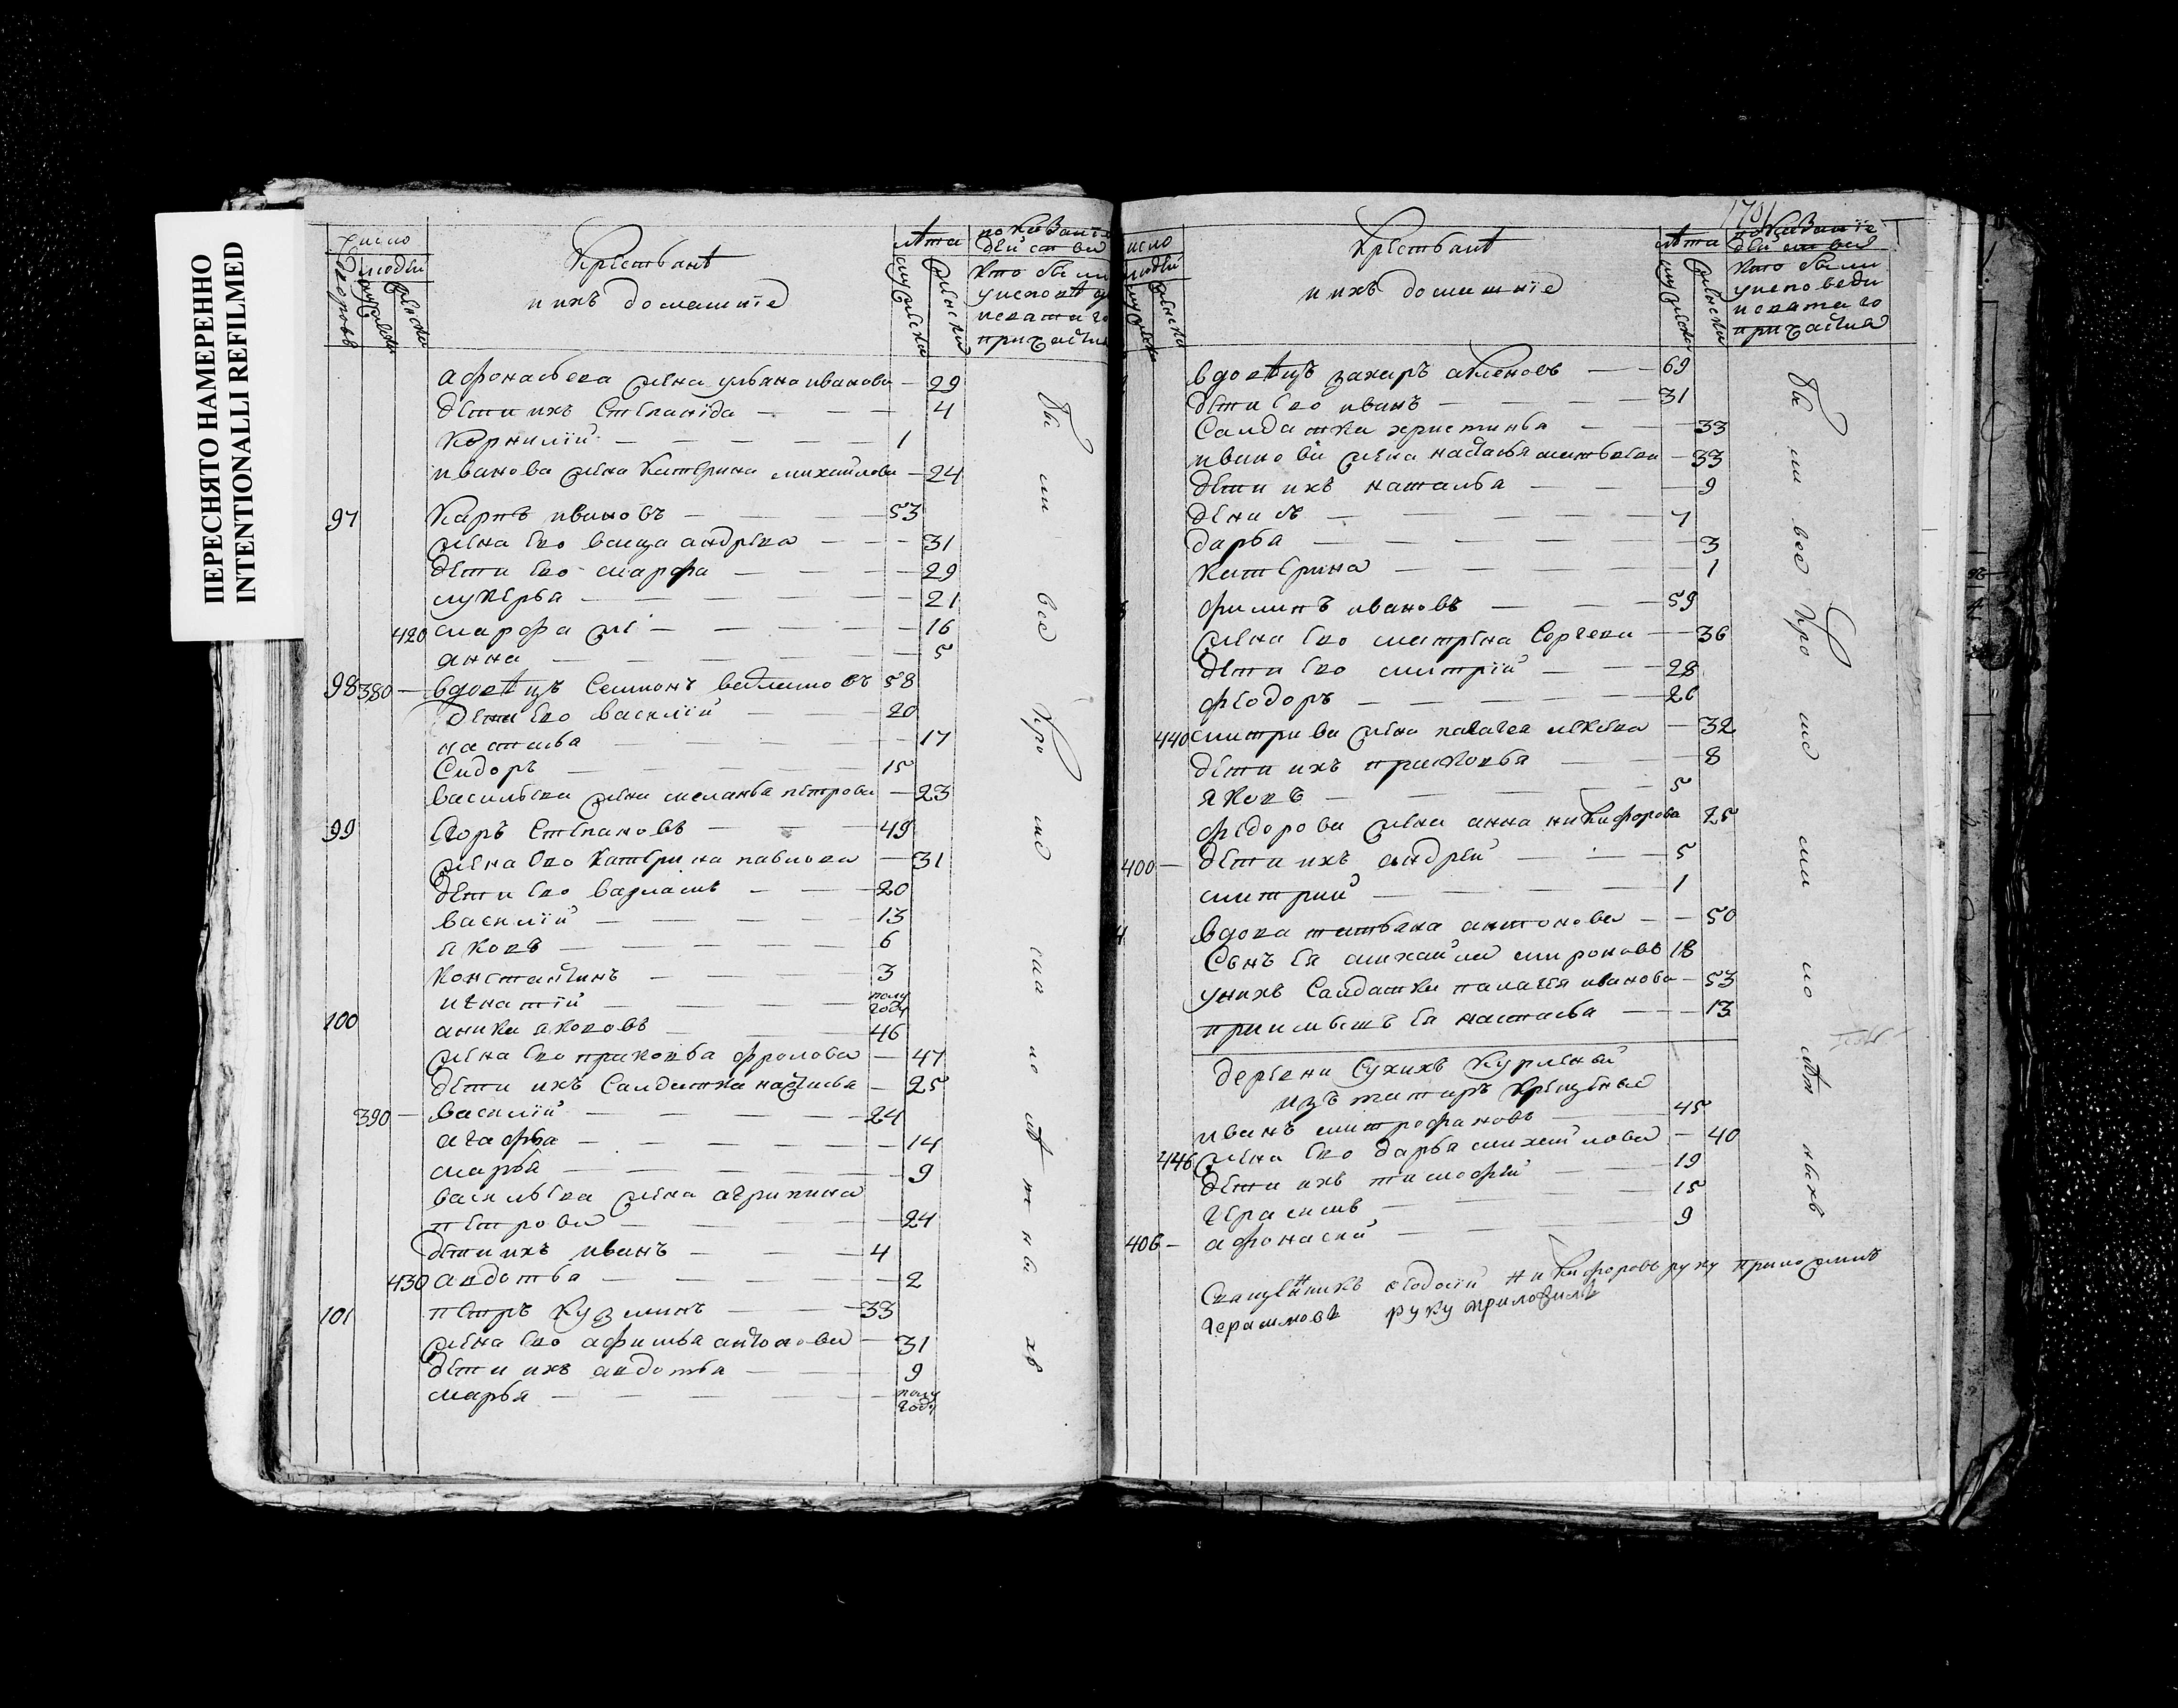 ПЕРЕСНЯТО НАМЕРЕННО
INTENTIONALLI REFILMED
число
людей
дворовъ
мужеска
женска
Крестьянѣ
и ихъ домашнїе
лѣта
мужеска
женска
показанїе
дѣйства
кто были
у исповѣди
и святаго
причастия
афонасьева жена ульяна иванова 29
дети ихъ степанїда 4
корнилїй 1
иванова жена катерина михайлова 24
97 карпъ ивановъ 53
жена ево андреева 31
дети ево марфа 29
лукерья 21
420 марфа 16
анна 5
98 380 вдовѣцъ семионъ 58
дети ево василїй 20
настасья 17
сидоръ 15
васильева жена меланья петрова 23
99 егоръ степановъ 49
жена ево катерина павлова 31
дети ево варламъ 20
василїй 13
яковъ 6
константинъ 3
игнатїй полу году
100 аника якововъ 46
жена ево прасковья фролова 47
дети ихъ салдатка настасья 25
390 василїй 24
агафья 14
марья 9
васильева жена агрипина
петрова 24
дети ихъ иванъ 4
430 авдотья 2
101 петръ кузминъ 33
жена ево афимья антонова 31
дети ихъ авдотья 9
марья полу году
были все кро
число
людей
мужеска
женска
Крестьянѣ
и ихъ домашнїе
лѣта
мужеска
женска
показанїе
дѣйства
кто были
у исповеди
и святаго
причастия
вдовѣцъ захаръ 69
дети ево иванъ 31
салдатка христинья 33
иванова жена настасья 33
дети ихъ наталья 9
денисъ 7
дарья 3
катерина 1
филипъ ивановъ 59
жена ево матрена сергеева 36
дети ево митрїй 28
феодоръ 26
440 митрива жена палагея 32
дети ихъ прасковья 8
яковъ 5
федорова жена анна никифорова 25
400 дети ихъ андрей 5
митрий 1
вдова татьяна антонова 50
сынъ ея михайла мироновъ 18
у нихъ салдатка палагея иванова 53
приимышъ ея настасья 13
деревни сухихъ
изъ татаръ крещеные
иванъ митрофановъ 45
446 жена ево дарья михайлова 40
дети ихъ тимофей 19
герасимъ 15
406 афонасий 9
были все кро
Священникъ Никифоровъ руку приложилъ
Герасимовъ руку приложилъ